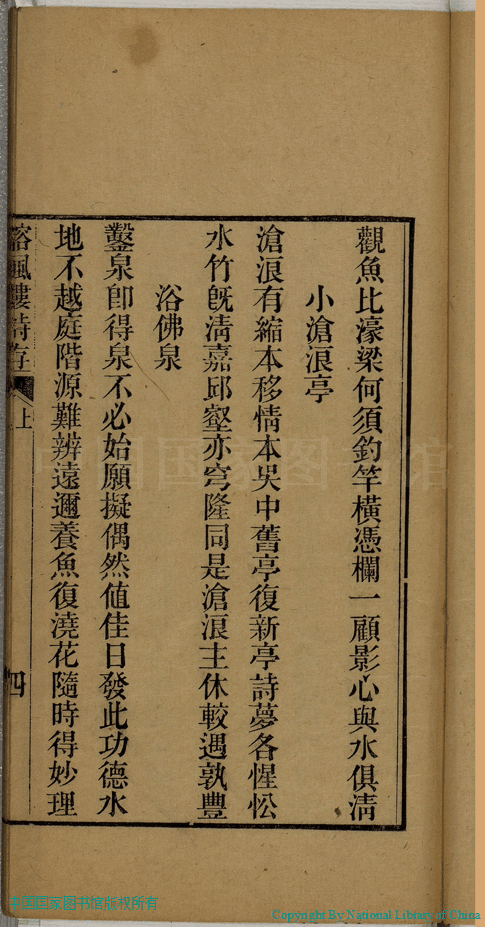 觀魚比濠梁何須釣竿橫憑欄一顧影心與水俱淸
小滄浪亭
滄浪有縮本移情本吳中舊亭復新亭詩夢各惺忪
水竹旣淸嘉邱壑亦穹隆同是滄浪主休較遇孰豐
浴佛泉
鑿泉卽得泉不必始願擬偶然値佳日發此功德水
地不越庭階源難辨遠邇養魚復澆花隨時得妙理
詩存
上
四
中国国家图书馆
中国国家图书馆版权所有
Copyright By National Library of China